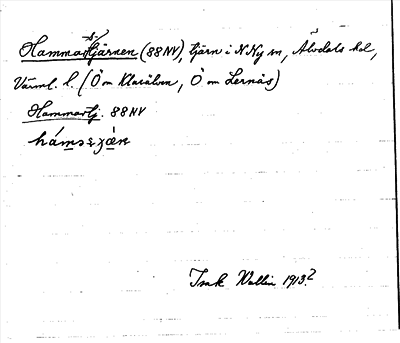 Hammarstjärnen (88NV), tjärn i N Ny sn, Älvdals hd,
Värml. l. (Ö om Klarälven, Ö om Lernäs)
Hammartj. 88 NV
Isak Wallin 1913?